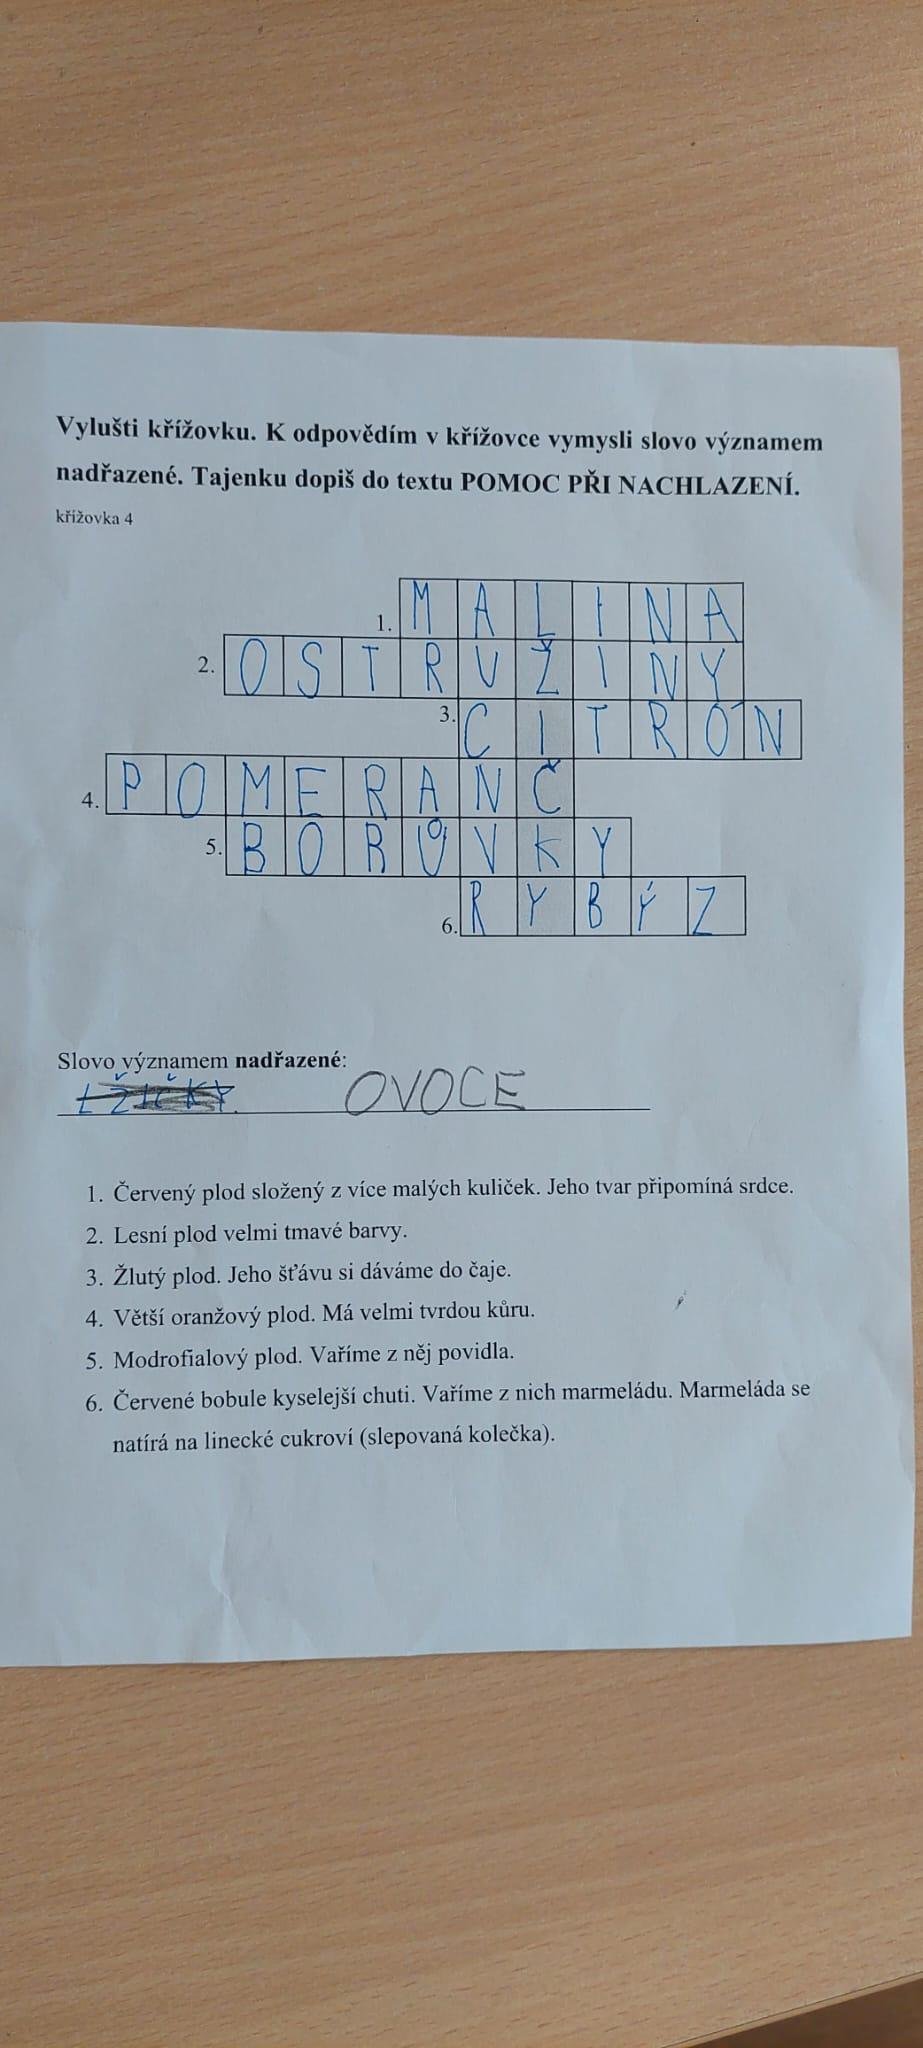 Vylušti křížovku. K odpovědím v křížovce vymysli slovo významem
nadřazené. Tajenku dopiš do textu POMOC PŘI NACHLAZENÍ.
křížovka 4
1. MALINA
2. OSTRUŽINY
3. CITRÓN
4. POMERANČ
5. BORŮVKY
6. RYBÝZ
Slovo významem nadřazené:
LŽIČKY OVOCE
1. Červený plod složený z více malých kuliček. Jeho tvar připomíná srdce.
2. Lesní plod velmi tmavé barvy.
3. Žlutý plod. Jeho šťávu si dáváme do čaje.
4. Větší oranžový plod. Má velmi tvrdou kůru.
5. Modrofialový plod. Vaříme z něj povidla.
6. Červené bobule kyselejší chuti. Vaříme z nich marmeládu. Marmeláda se
natírá na linecké cukroví (slepovaná kolečka).